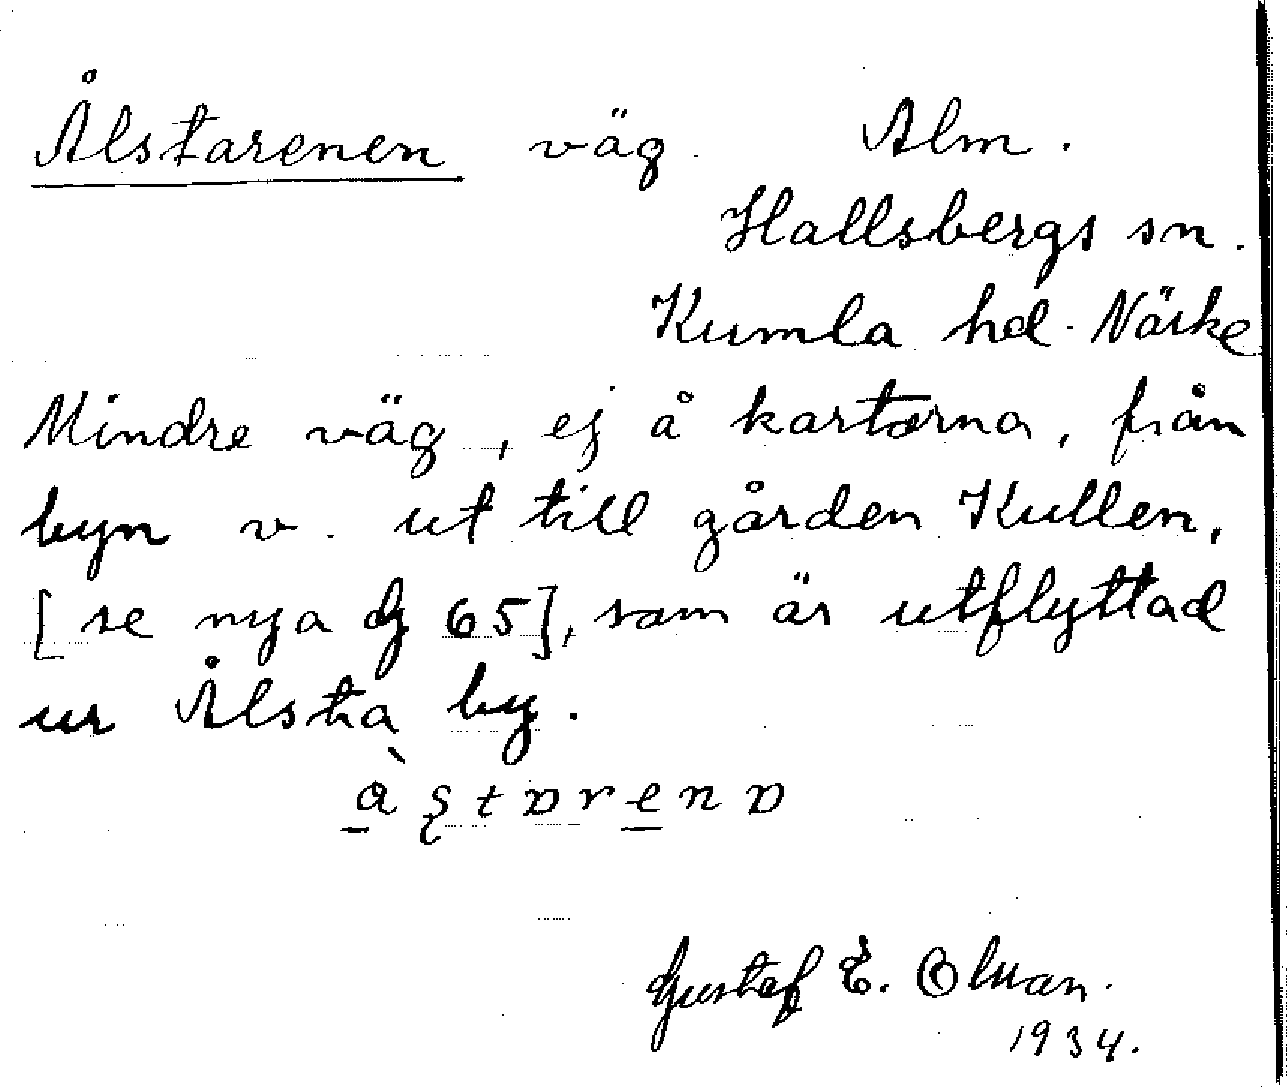 Ålstarenen väg. Alm.
Hallsbergs sn.
Kumla hd. Närke
Mindre väg, ej å kartorna, från
byn v. ut till gården Kullen,
[se nya dg 65], som är utflyttad
ur Ålsta by.
Gustaf E. Olman.
1934.